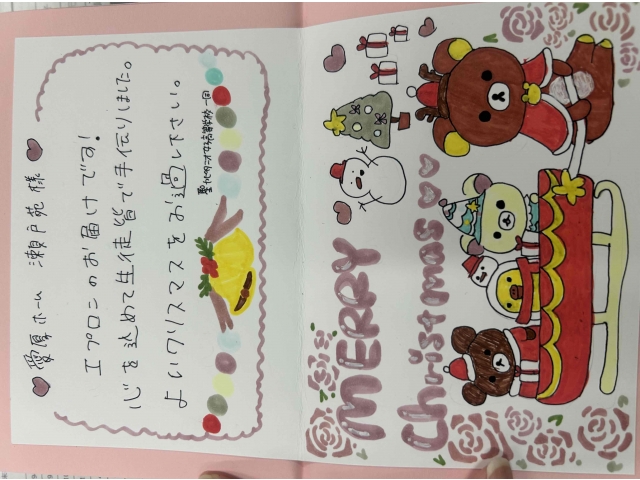 愛厚ホーム 瀬戸苑 様
エプロンのお届けです!
心を込めて生徒皆で手伝りました。
よいクリスマスをお過し下さい。
聖カピタニオ女子高等学校一同
MERRY
Christmas